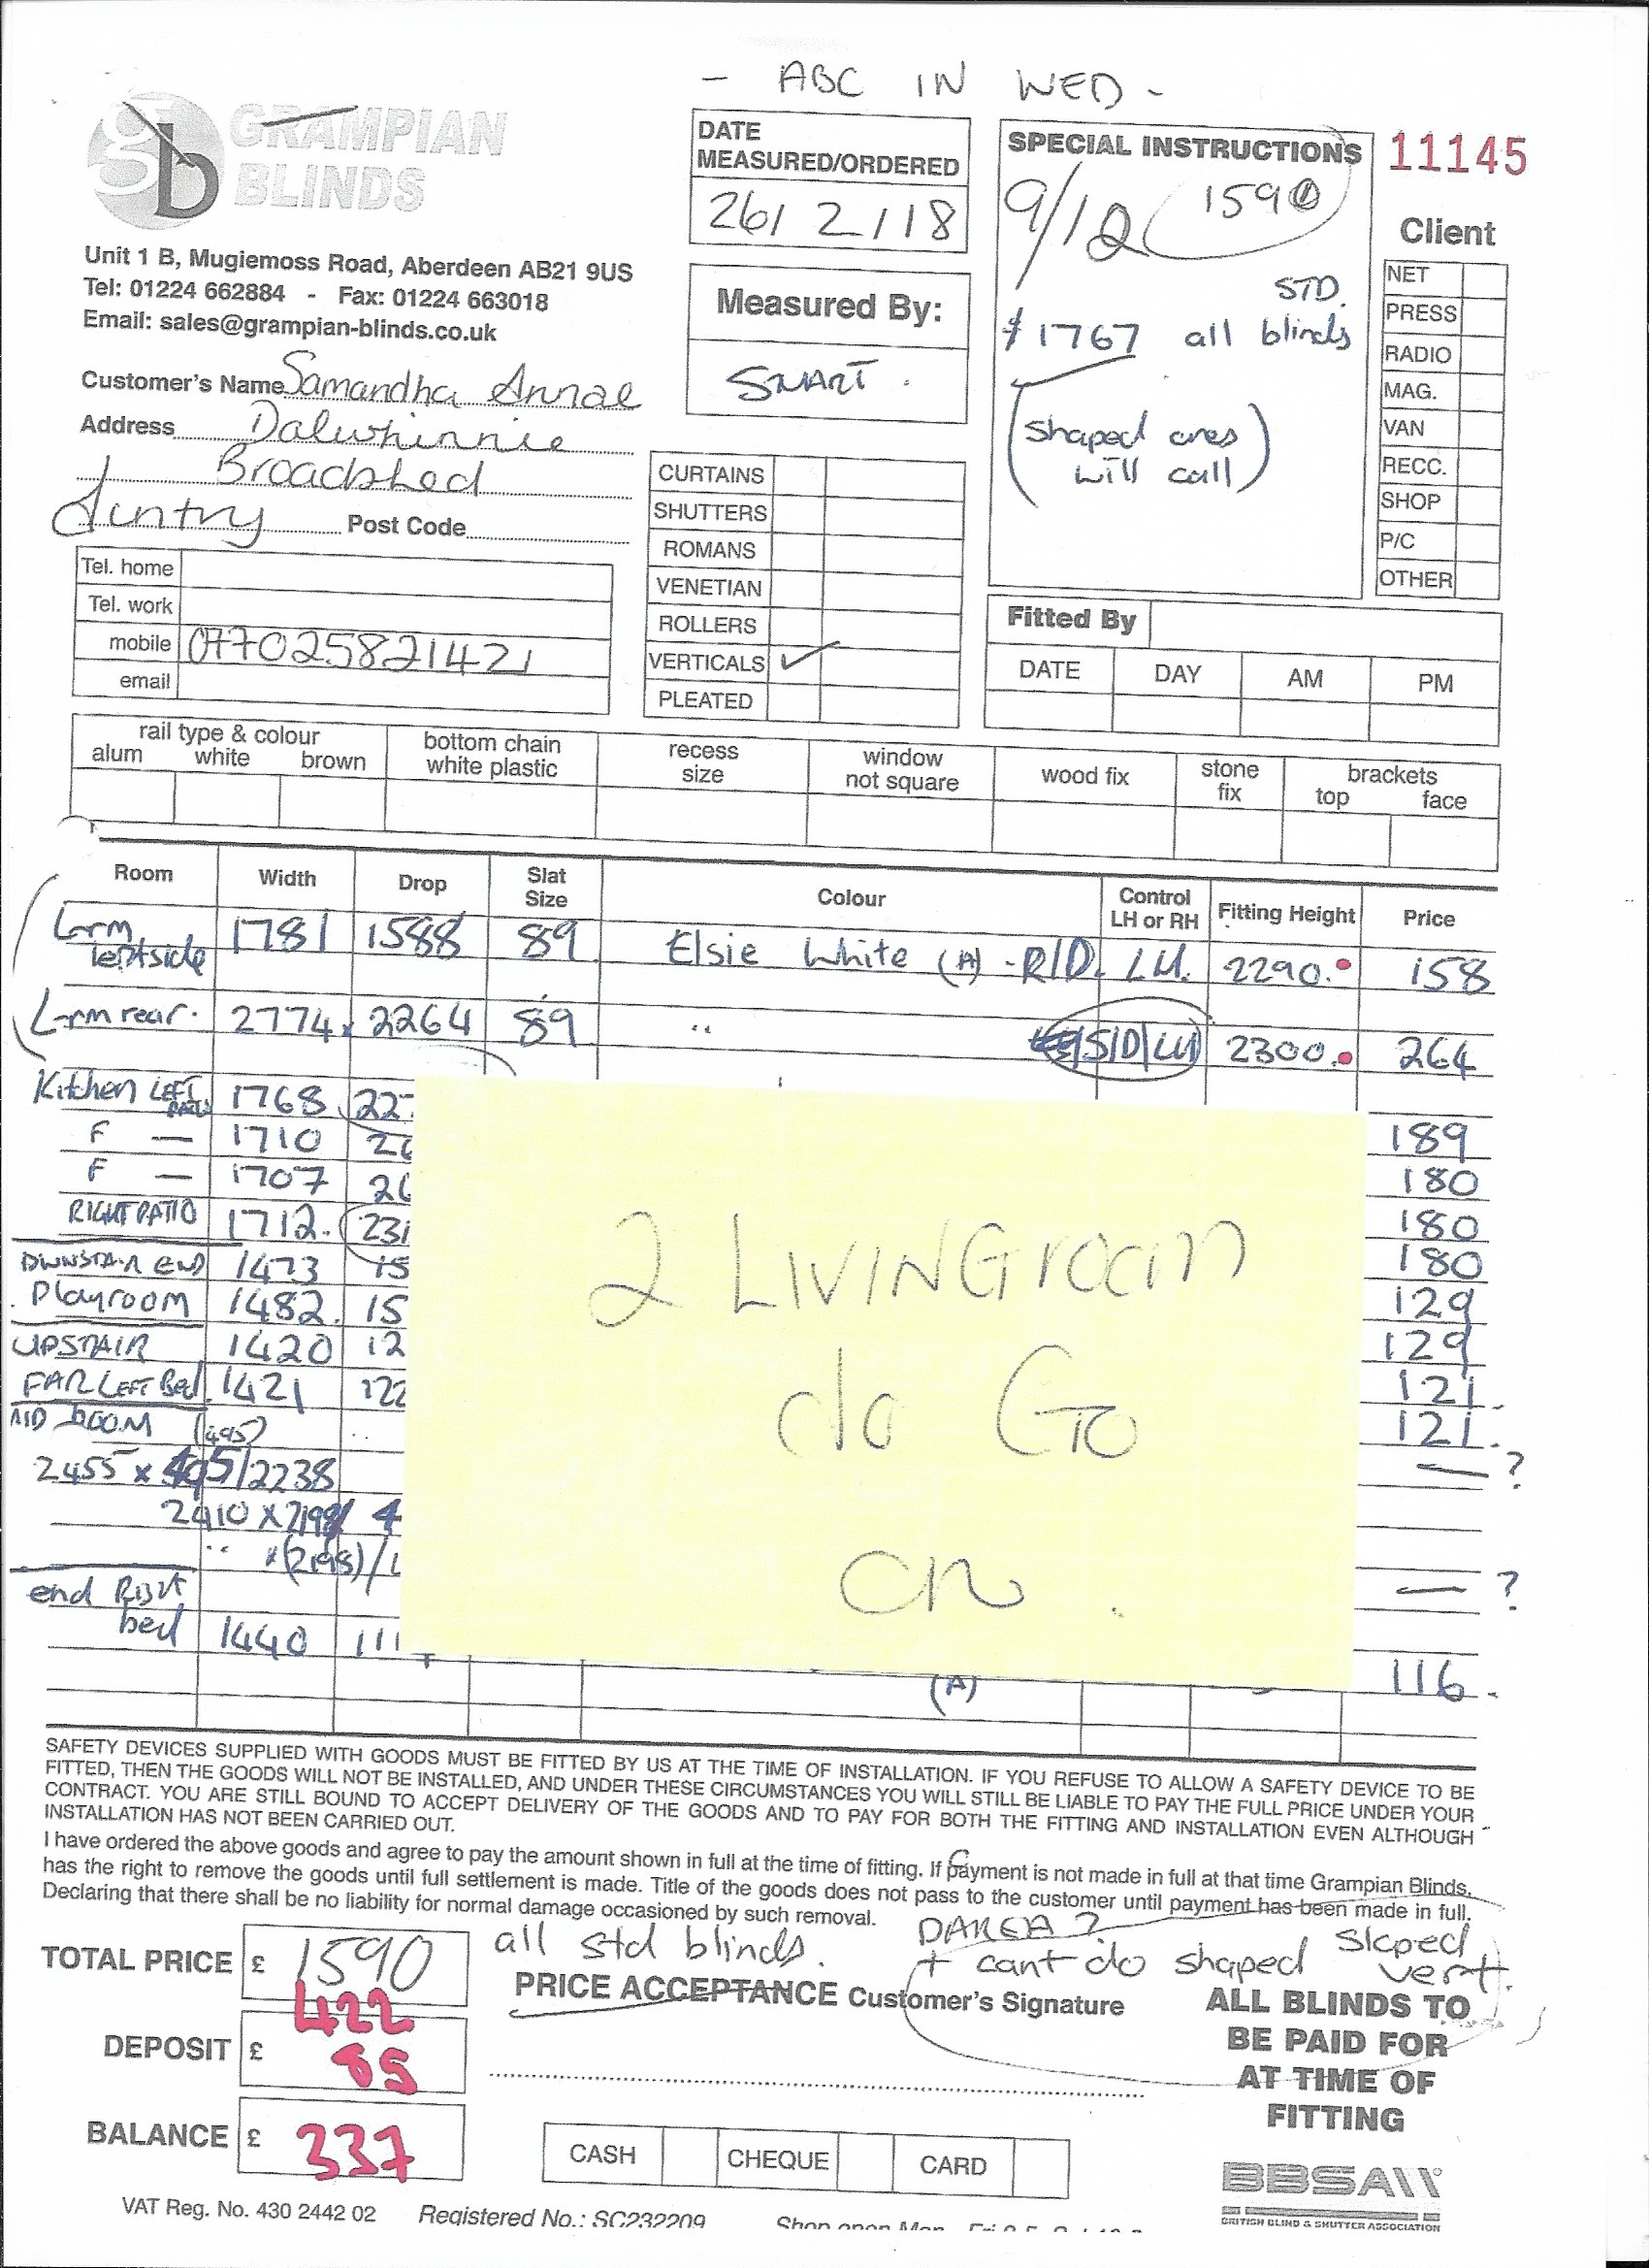 - ABC IN WED -
GRAMPIAN
BLINDS
gb
Unit 1 B, Mugiemoss Road, Aberdeen AB21 9US
Tel: 01224 662884 - Fax: 01224 663018
Email: sales@grampian-blinds.co.uk
Customer's Name Samandha
Address Dalwhinnie
Broadshed
Post Code
Tel. home
Tel. work
mobile 077025821421
email
DATE
MEASURED/ORDERED
26/2/18
Measured By:
SMART.
CURTAINS
SHUTTERS
ROMANS
VENETIAN
ROLLERS
VERTICALS ✓
PLEATED
SPECIAL INSTRUCTIONS
9/12 1590
STD.
1767 all blinds
(shaped ones
will call)
11145
Client
NET
PRESS
RADIO
MAG.
VAN
RECC.
SHOP
P/C
OTHER
Fitted By
DATE DAY AM PM
rail type & colour
alum white brown
bottom chain
white plastic
recess
size
window
not square
wood fix
stone
fix
brackets
top face
Room Width Drop Slat Size Colour Control LH or RH Fitting Height Price
L-rm leftside 1781 1588 89 Elsie White (A) - R/D. LH. 2290. 158
L-rm rear. 2774 x 2264 89 " S/D/LH 2300. 264
Kitchen LEFT 1768 22 189
F — 1710 26 180
F — 1707 26 180
RIGHT PATIO 1712. 231 180
DWNSTAIR END 1473 15 129
Playroom 1482. 15 129
UPSTAIR 1420 12 121.
FAR LEFT Bed 1421 122 121.
MID ROOM (495)
2455 x 495/2238 — ?
2410 x 2198/ 4
" x (2198)/ — ?
end Right
bed 1440 111 (A) 116.
2 LIVINGroom
do GTO
on.
SAFETY DEVICES SUPPLIED WITH GOODS MUST BE FITTED BY US AT THE TIME OF INSTALLATION. IF YOU REFUSE TO ALLOW A SAFETY DEVICE TO BE
FITTED, THEN THE GOODS WILL NOT BE INSTALLED, AND UNDER THESE CIRCUMSTANCES YOU WILL STILL BE LIABLE TO PAY THE FULL PRICE UNDER YOUR
CONTRACT. YOU ARE STILL BOUND TO ACCEPT DELIVERY OF THE GOODS AND TO PAY FOR BOTH THE FITTING AND INSTALLATION EVEN ALTHOUGH
INSTALLATION HAS NOT BEEN CARRIED OUT.
I have ordered the above goods and agree to pay the amount shown in full at the time of fitting. If payment is not made in full at that time Grampian Blinds,
has the right to remove the goods until full settlement is made. Title of the goods does not pass to the customer until payment has been made in full.
Declaring that there shall be no liability for normal damage occasioned by such removal.
TOTAL PRICE £ 1590
422
DEPOSIT £ 85
BALANCE £ 337
all std blinds.
+ cant do shaped sloped
vert.
PRICE ACCEPTANCE Customer's Signature
CASH CHEQUE CARD
ALL BLINDS TO
BE PAID FOR
AT TIME OF
FITTING
BBSA
BRITISH BLIND & SHUTTER ASSOCIATION
VAT Reg. No. 430 2442 02 Registered No.: SC232209